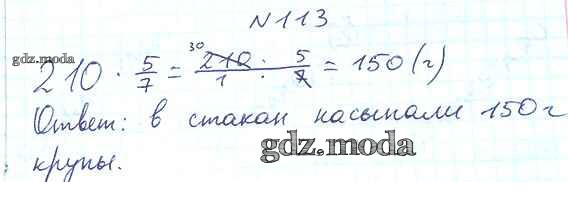 №113
gdz.moda
210 · 5/7 = 30 210/1 : 5/7 = 150 (г)
Ответ: в стакан насыпали 150 г
gdz.moda
крупы.